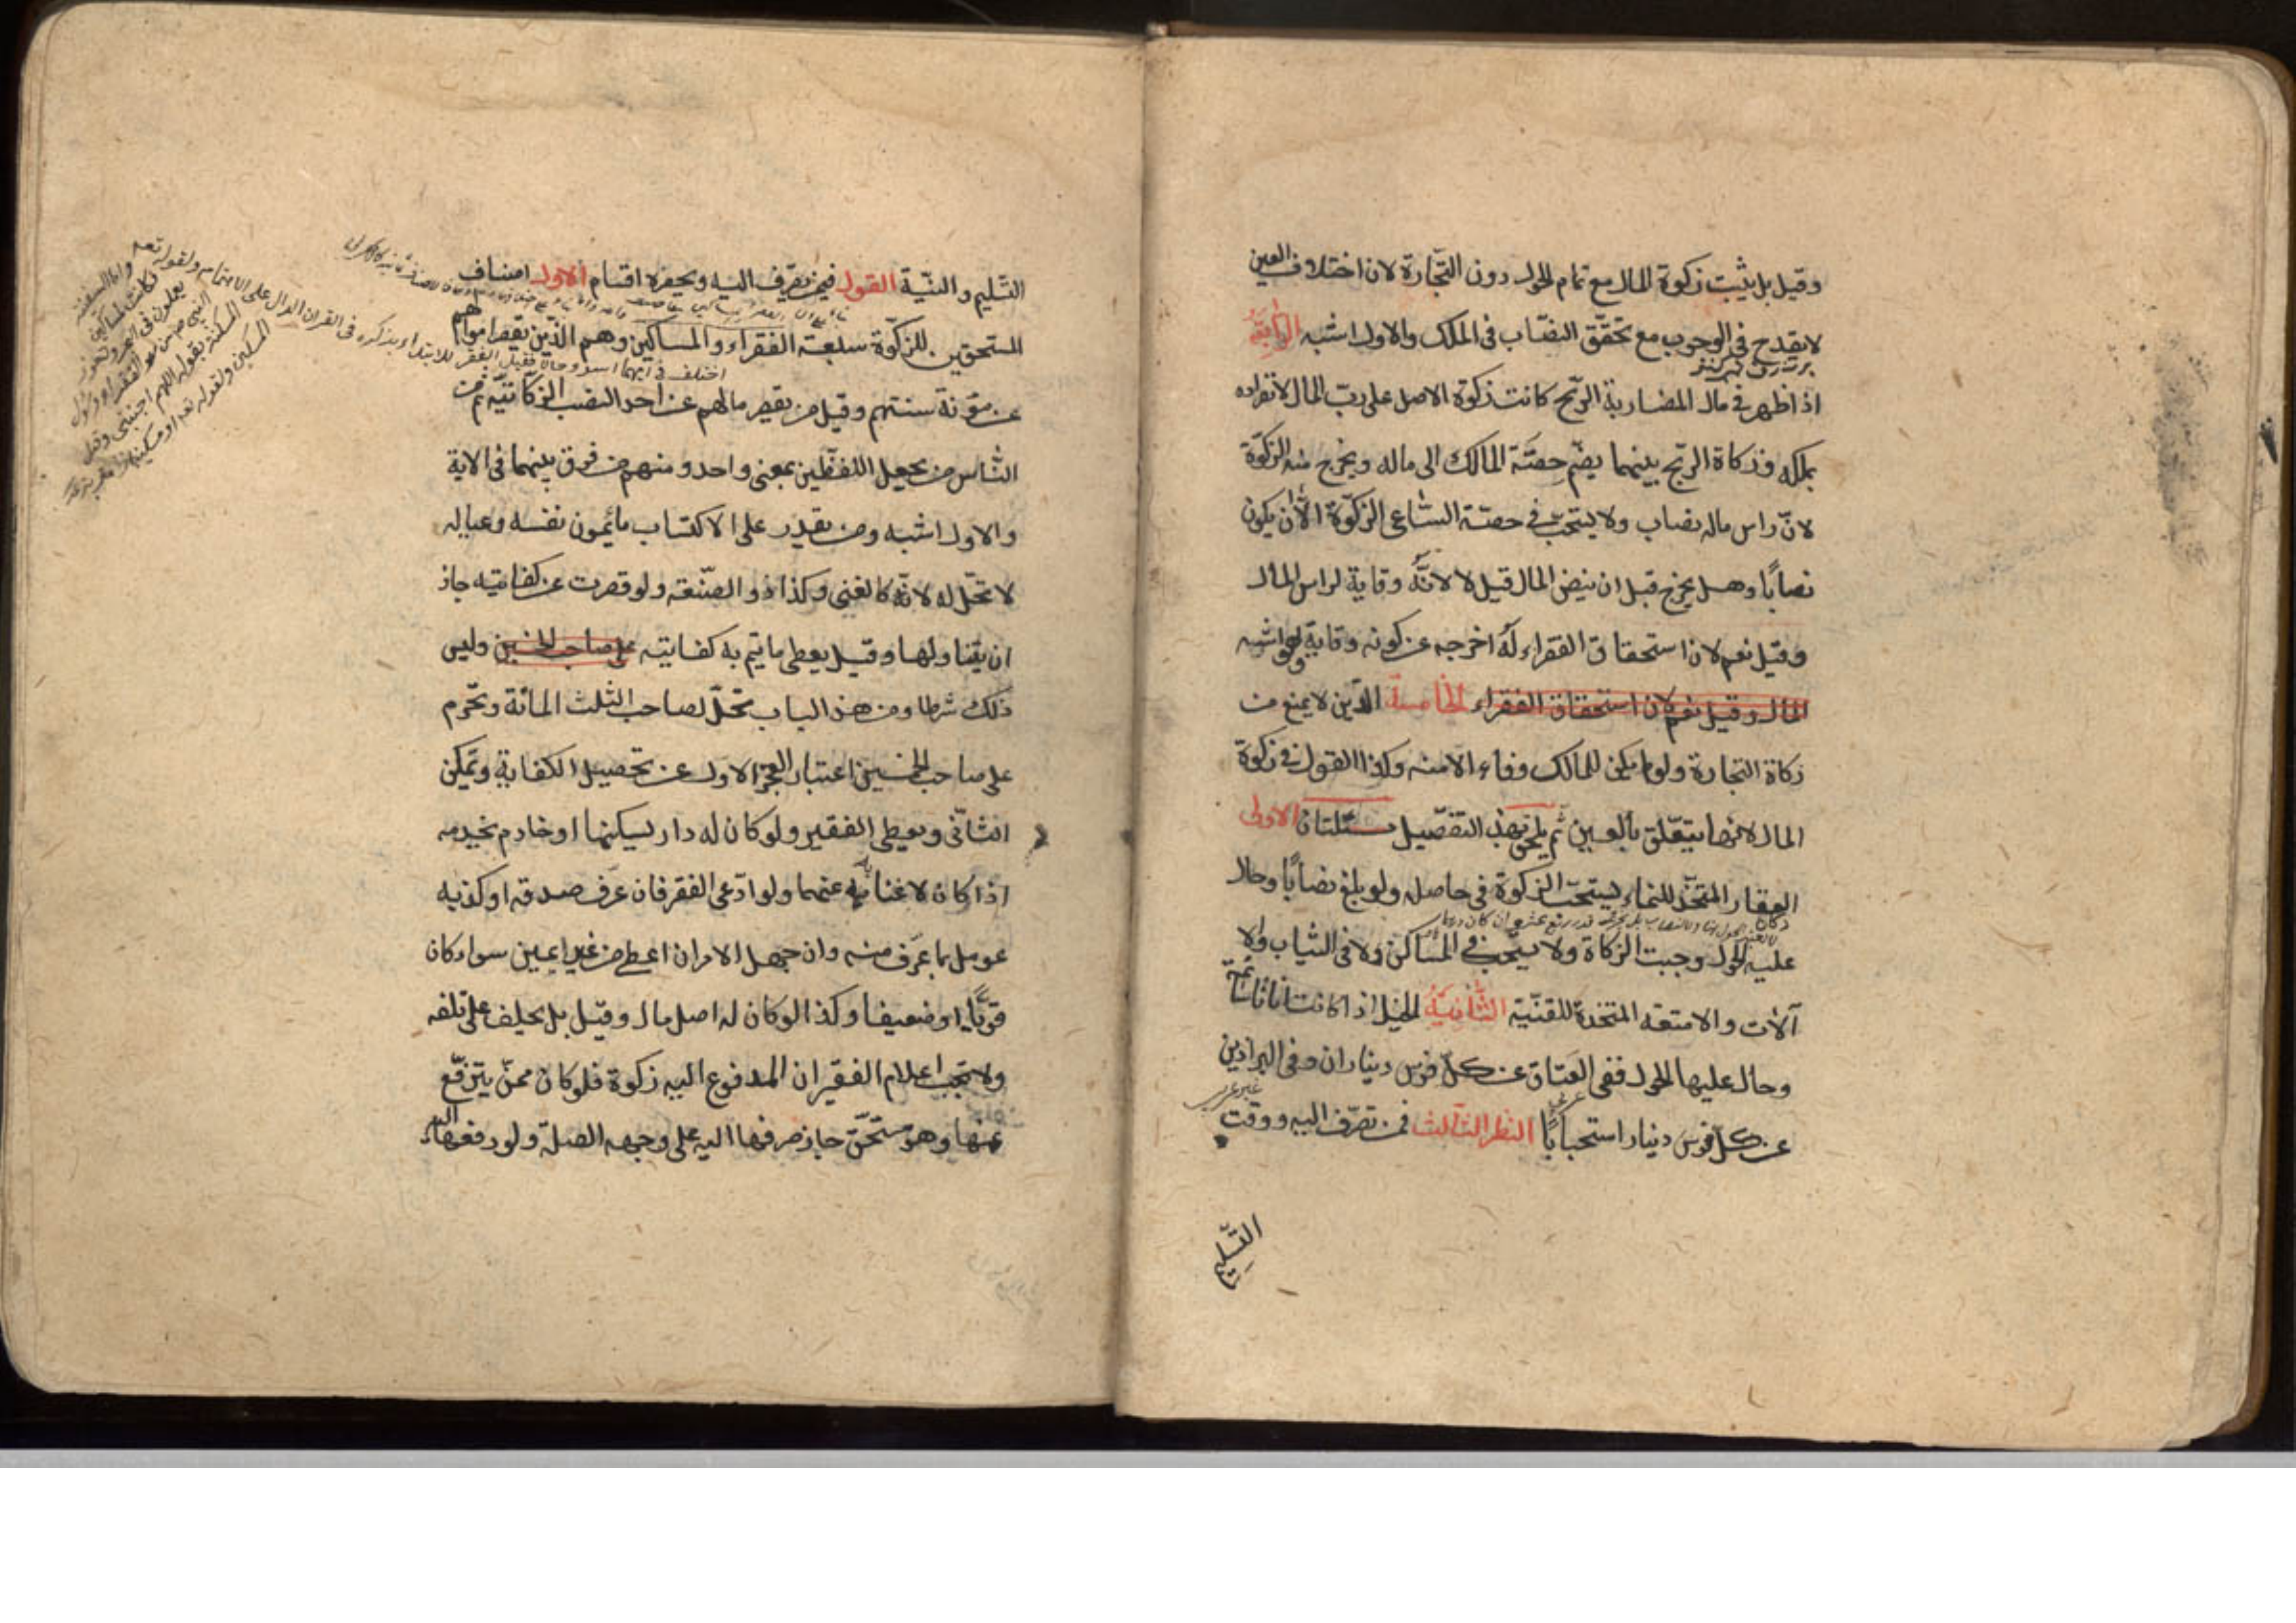 وقيل بل يثبت زكوة المال مع تمام الحول دون التجارة لان اختلاف العين
لا يقدح فى الوجوب مع تحقق النصاب فى الملك والاول اشبه الرابعة
اذا ظهر فى مال المضاربة الربح كانت زكوة الاصل على رب المال لانفراده
بملكه وزكاة الربح بينهما يضم حصته المالك الى ماله ويخرج منه الزكوة
لان راس ماله نصاب ولا يستحب فى حصته الساعى الزكوة الا ان يكون
نصابا وهل يخرج قبل ان ينض المال قيل لا لانه وقاية لراس المال
وقيل نعم لان استحقاق الفقراء له اخرجه عن كونه وقاية وهو اشبه
المال وقيل نعم لان استحقاق الفقراء الخامسة الدين لا يمنع من
زكاة التجارة ولو لم يكن للمالك وفاء الا منه وكذا القول فى زكوة
المال لانها يتعلق بالعين ثم يلحق بهذا التفصيل مسئلتان الاولى
العقار المتخذ للنماء يستحب الزكوة فى حاصله ولو بلغ نصابا وحال
عليه الحول وجبت الزكاة ولا يستحب فى المساكن ولا فى الثياب ولا
آلات والامتعه المتخذة للقنية الثانية الخيل اذا كانت اناثا سائمة
وحال عليها الحول ففى العتاق عن كل فرس ديناران وفى البراذين
عن كل فرس دينار استحبابا النظر الثالث فى من تصرف اليه ووقت
التسليم
التسليم والنية القول فيمن تصرف اليه ويحصره اقسام الاول اصناف
المستحقين للزكوة سبعة الفقراء والمساكين وهم الذين يقصر اموالهم
اختلف فى ايهما اسوء حالا فقيل الفقر للابتداء بذكره فى القران الدال على الاهتمام ولقوله تعه
عن مؤنة سنتهم وقيل من يقصر مالهم عن احد النصب الزكاتيه ثم من
الناس من يجعل اللفظين بمعنى واحد ومنهم من فرق بينهما فى الاية
والاول اشبه ومن يقدر على الاكتساب ما يمون نفسه وعياله
لا تحل له لانه كالغنى وكذا ذو الصنعه ولو قصرت عن كفايته جاز
ان يتناولها وقيل يعطى ما يتم به كفايته على صاحب الخمسين وليس
ذلك شرطا ومن هذا الباب تحل لصاحب الثلث المائة وتحرم
على صاحب الخمسين اعتبار العجز الاول عن تحصيل الكفاية وتمكن
الثانى ويعطى الفقير ولو كان له دار يسكنها او خادم يخدمه
اذا كان لا غناء به عنهما ولو ادعى الفقر فان عرف صدقه او كذبه
عومل بما عرف منه وان جهل الامران اعطى من غير يمين سواء كان
قويا او ضعيفا وكذا لو كان له اصل مال وقيل بل يحلف على تلفه
ولا يجب اعلام الفقير ان المدفوع اليه زكوة فلو كان ممن يترفع
عنها وهو مستحق جاز صرفها اليه على وجه الصلة ولو دفعها اليه